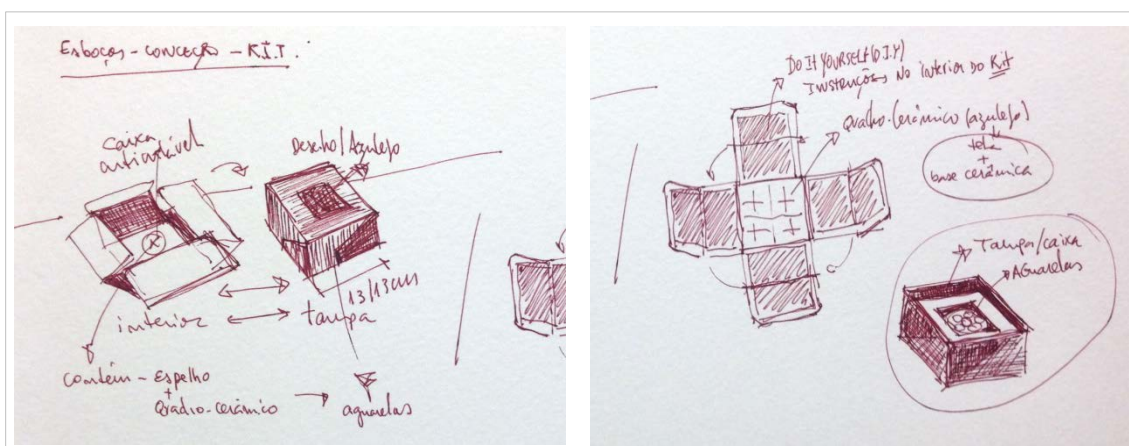 Esboços - CONCEÇÃO - K.I.T.
caixa
Desenho/Azulejo
13/13cm
interior
tampa
Contém - Espelho
+
Quadro-cerâmico
aguarelas
DO IT YOURSELF (D.I.Y)
INSTRUÇÕES No interior do Kit
Quadro-Cerâmico (azulejo)
tela
+
base cerâmica
Tampa/caixa
AGUARELAS